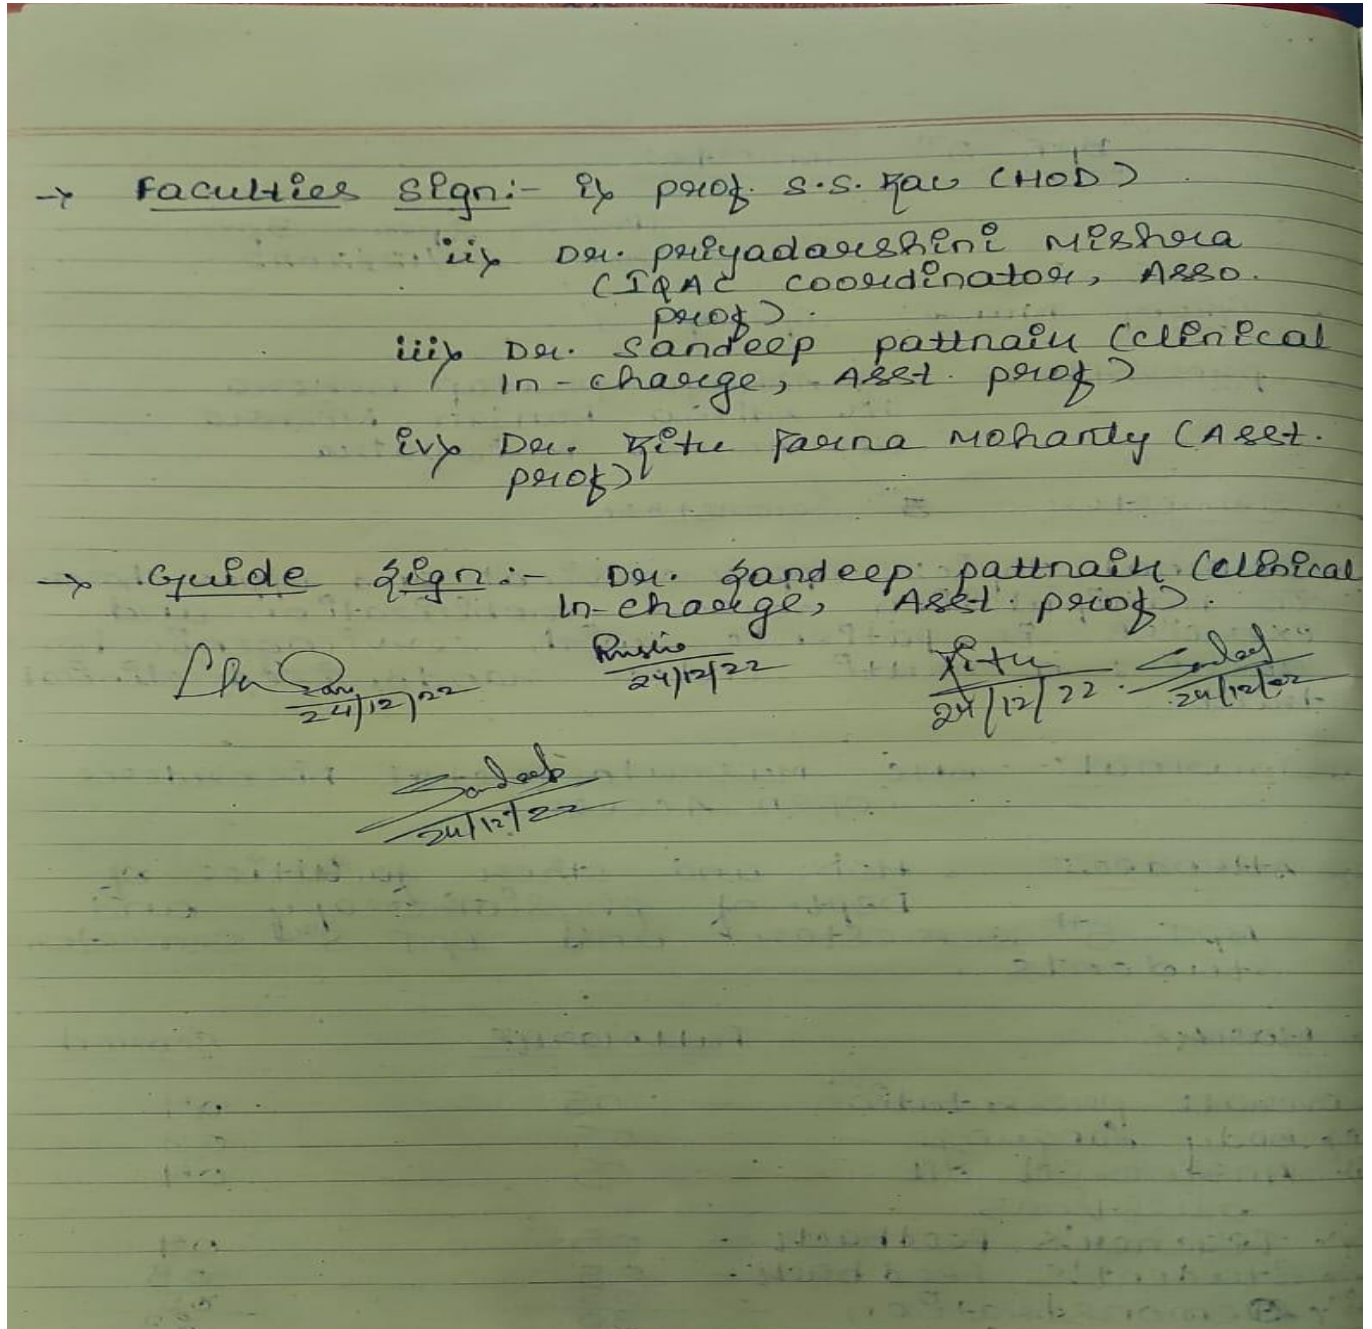 → Faculties Sign:- i> prof. S.S. Rau (HOD).
ii> Dr. priyadarshini Mishra
(IQAC coordinator, Asso.
prof).
iii> Dr. Sandeep pattnaik (clinical
In-charge, Asst. prof)
iv> Dr. Ritu Parna Mohanty (Asst.
prof)
→ Guide Sign:- Dr. Sandeep pattnaik (clinical
In-charge, Asst. prof).
Ritu Sandeep
24/12/22 24/12/22 24/12/22 24/12/22
Sandeep
24/12/22